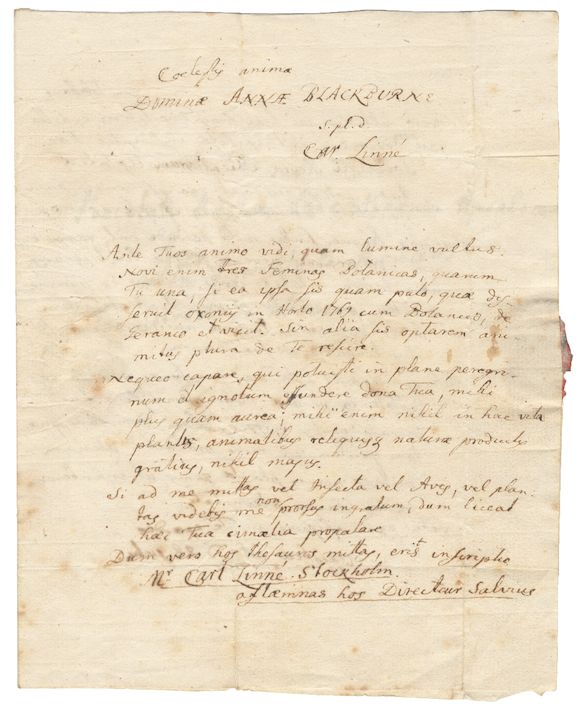 Coelestis animæ
Dominæ ANNÆ BLACKBURNE
S. pl. d
Car. Linné
Ante Tuos animo vidi, quam lumine vultus.
Novi enim tres Feminas Botanicas, quarum
Tu una, si ea ipsa sis quam puto, quæ dis-
seruit oxoniis in Horto 176 cum Botanico, de
Geranio et vicit. Sin alia sis optarem ani-
mitus plura de Te rescire.
Nequeo capare, qui potuisti in plane peregri-
num et ignotum effundere dona Tua, mihi
plus quam aurea; mihi enim nihil in hac vita
plantis, animalibus reliquisq naturæ productis
gratius, nihil majus.
Si ad me mittas vel Insecta vel Aves, vel plan-
tas videbis me non prorsus ingratum, dum liceat
hæc Tua cimælia propalare
Dum vero hos thesauros mittas, erit inscriptio
Mr Carl Linné. Stockholm.
aflæmnas hos Directeur Salvius